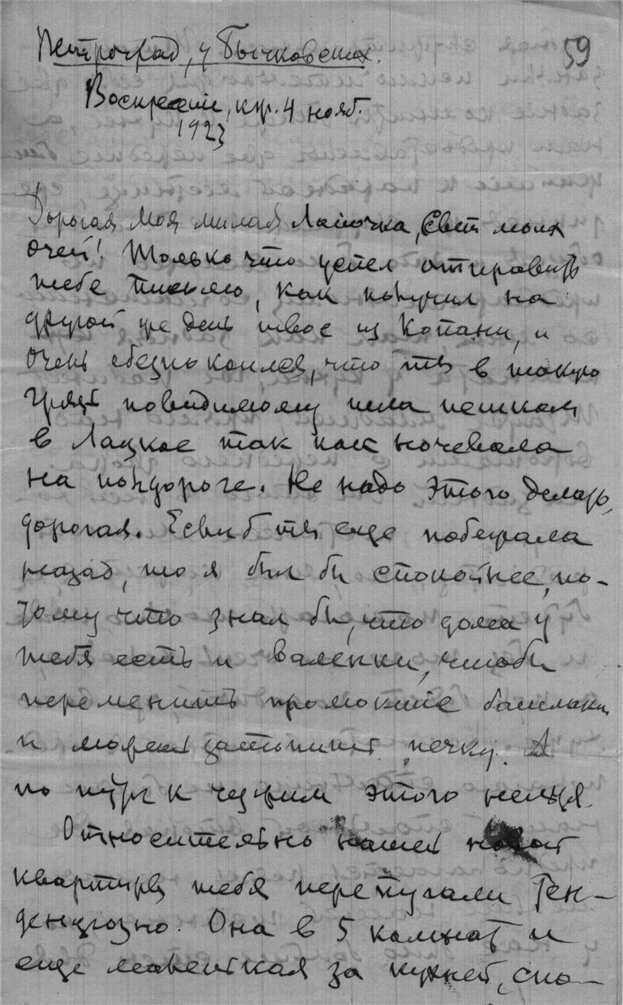 Петроград, у Бычковских.
59
Воскресение, 4 нояб.
1923
Дорогая моя милая Лялочка, Свет моих
очей! Только что успел отправить
тебе письмо, как получил на
другой же день твое из Копани, и
очень обезпокоился, что ты в такую
грязь повидимому шла пешком
в Лацкое так как ночевала
на полдороге. Не надо этого делать,
дорогая. Если б ты еще побежала
назад, то я был бы спокойнее, по-
тому что знал бы, что дома у
тебя есть и валенки, чтобы
переменить промокшие башмаки
и может затопишь печку. А
по пути к чужим этого нельзя.
Относительно нашей новой
квартиры тебя перепугали тен-
денциозно. Она в 5 комнат и
еще маленькая за кухней, спо-